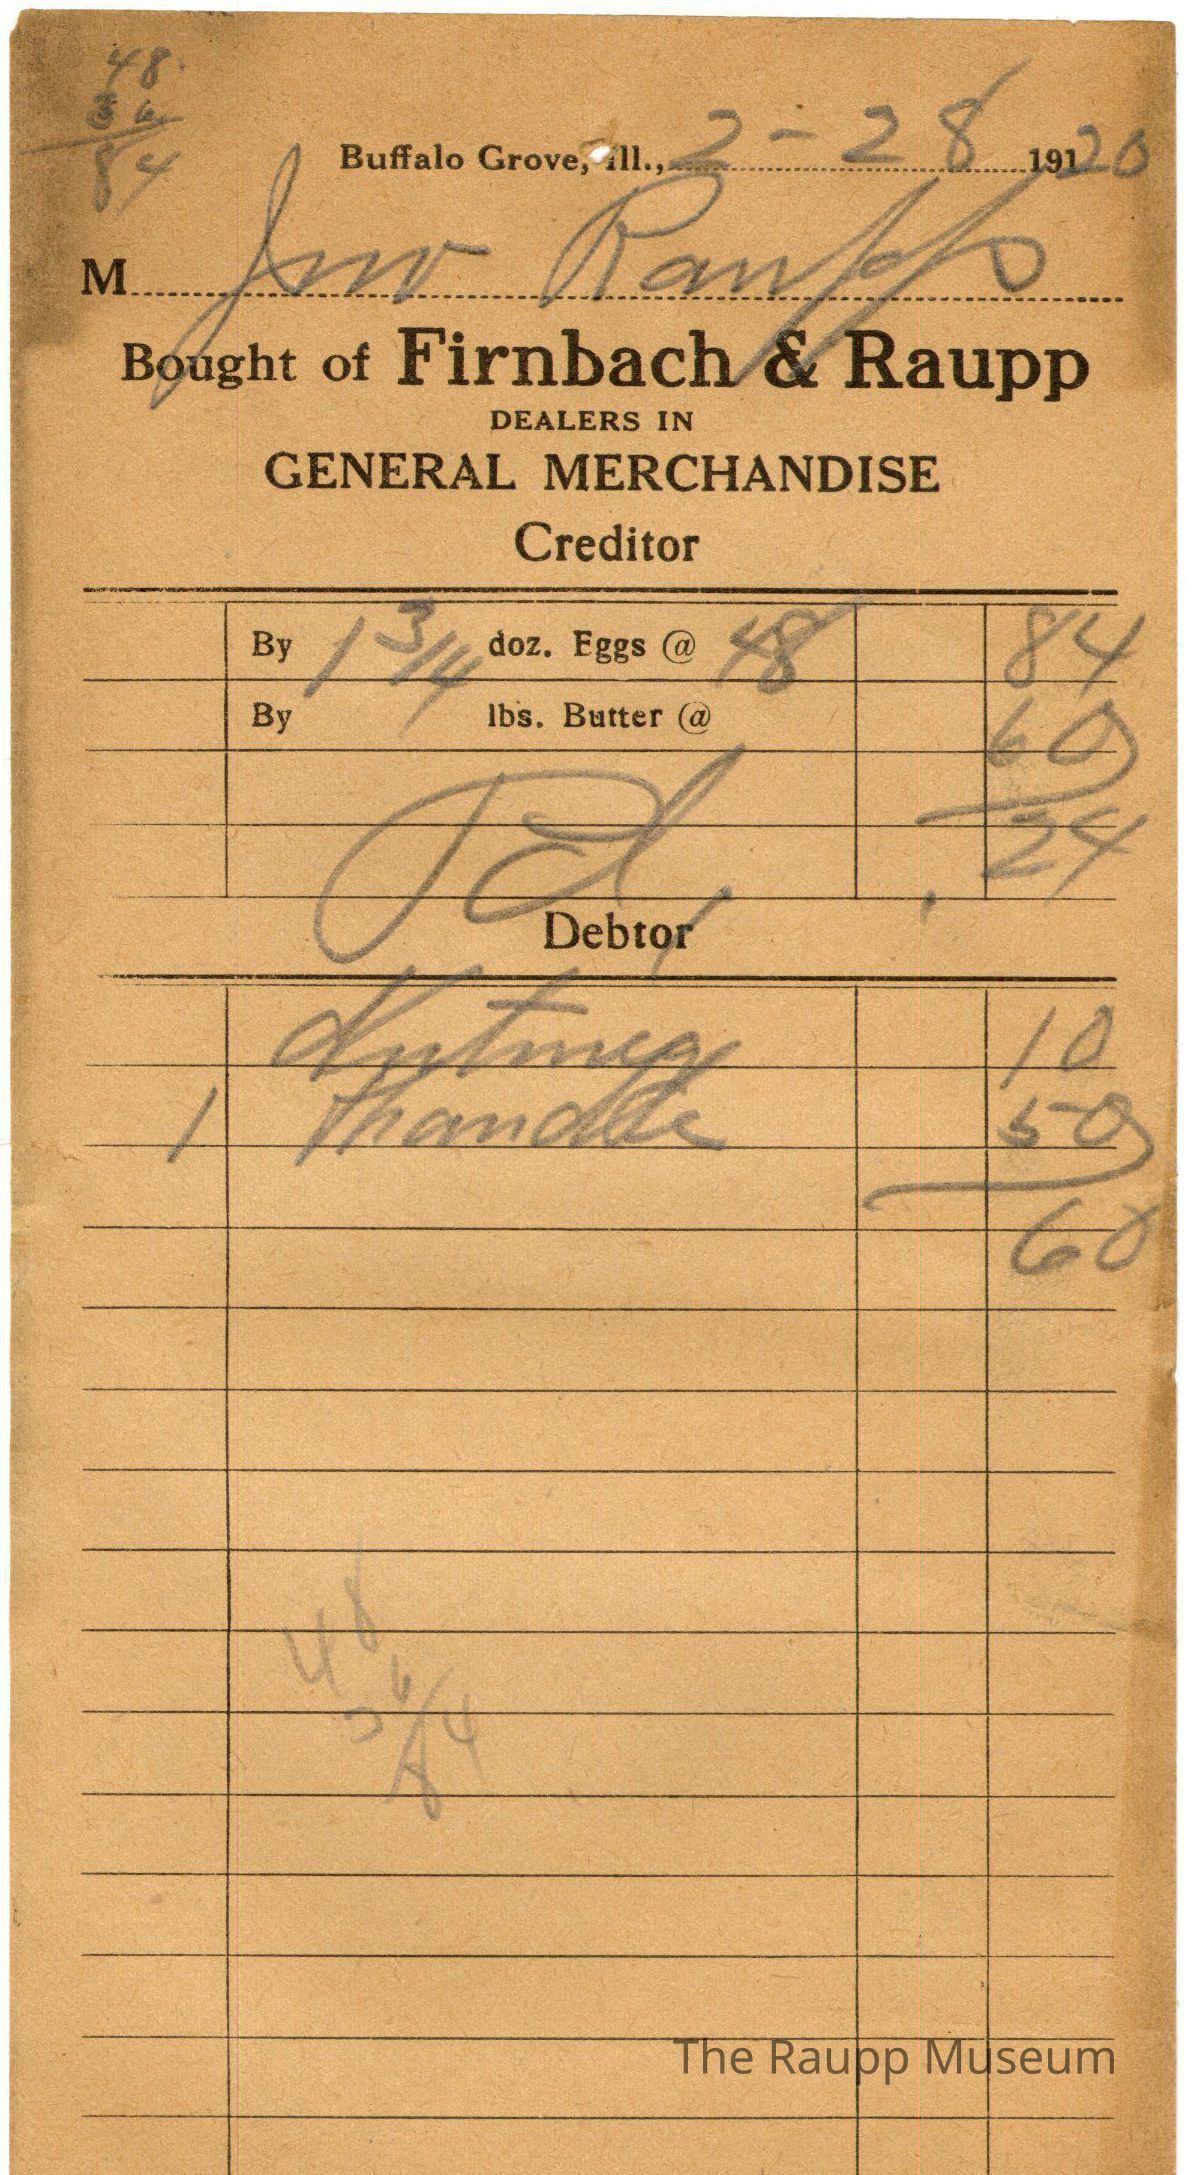 48
36
84
Buffalo Grove, Ill., 2-28 19120
M Jno Raupp
Bought of Firnbach & Raupp
DEALERS IN
GENERAL MERCHANDISE
Creditor
By 1 3/4 doz. Eggs @ 48 84
By lbs. Butter @ 60
24
Pd.
Debtor
Nutmeg 10
1 Handle 50
60
48
36
84
The Raupp Museum